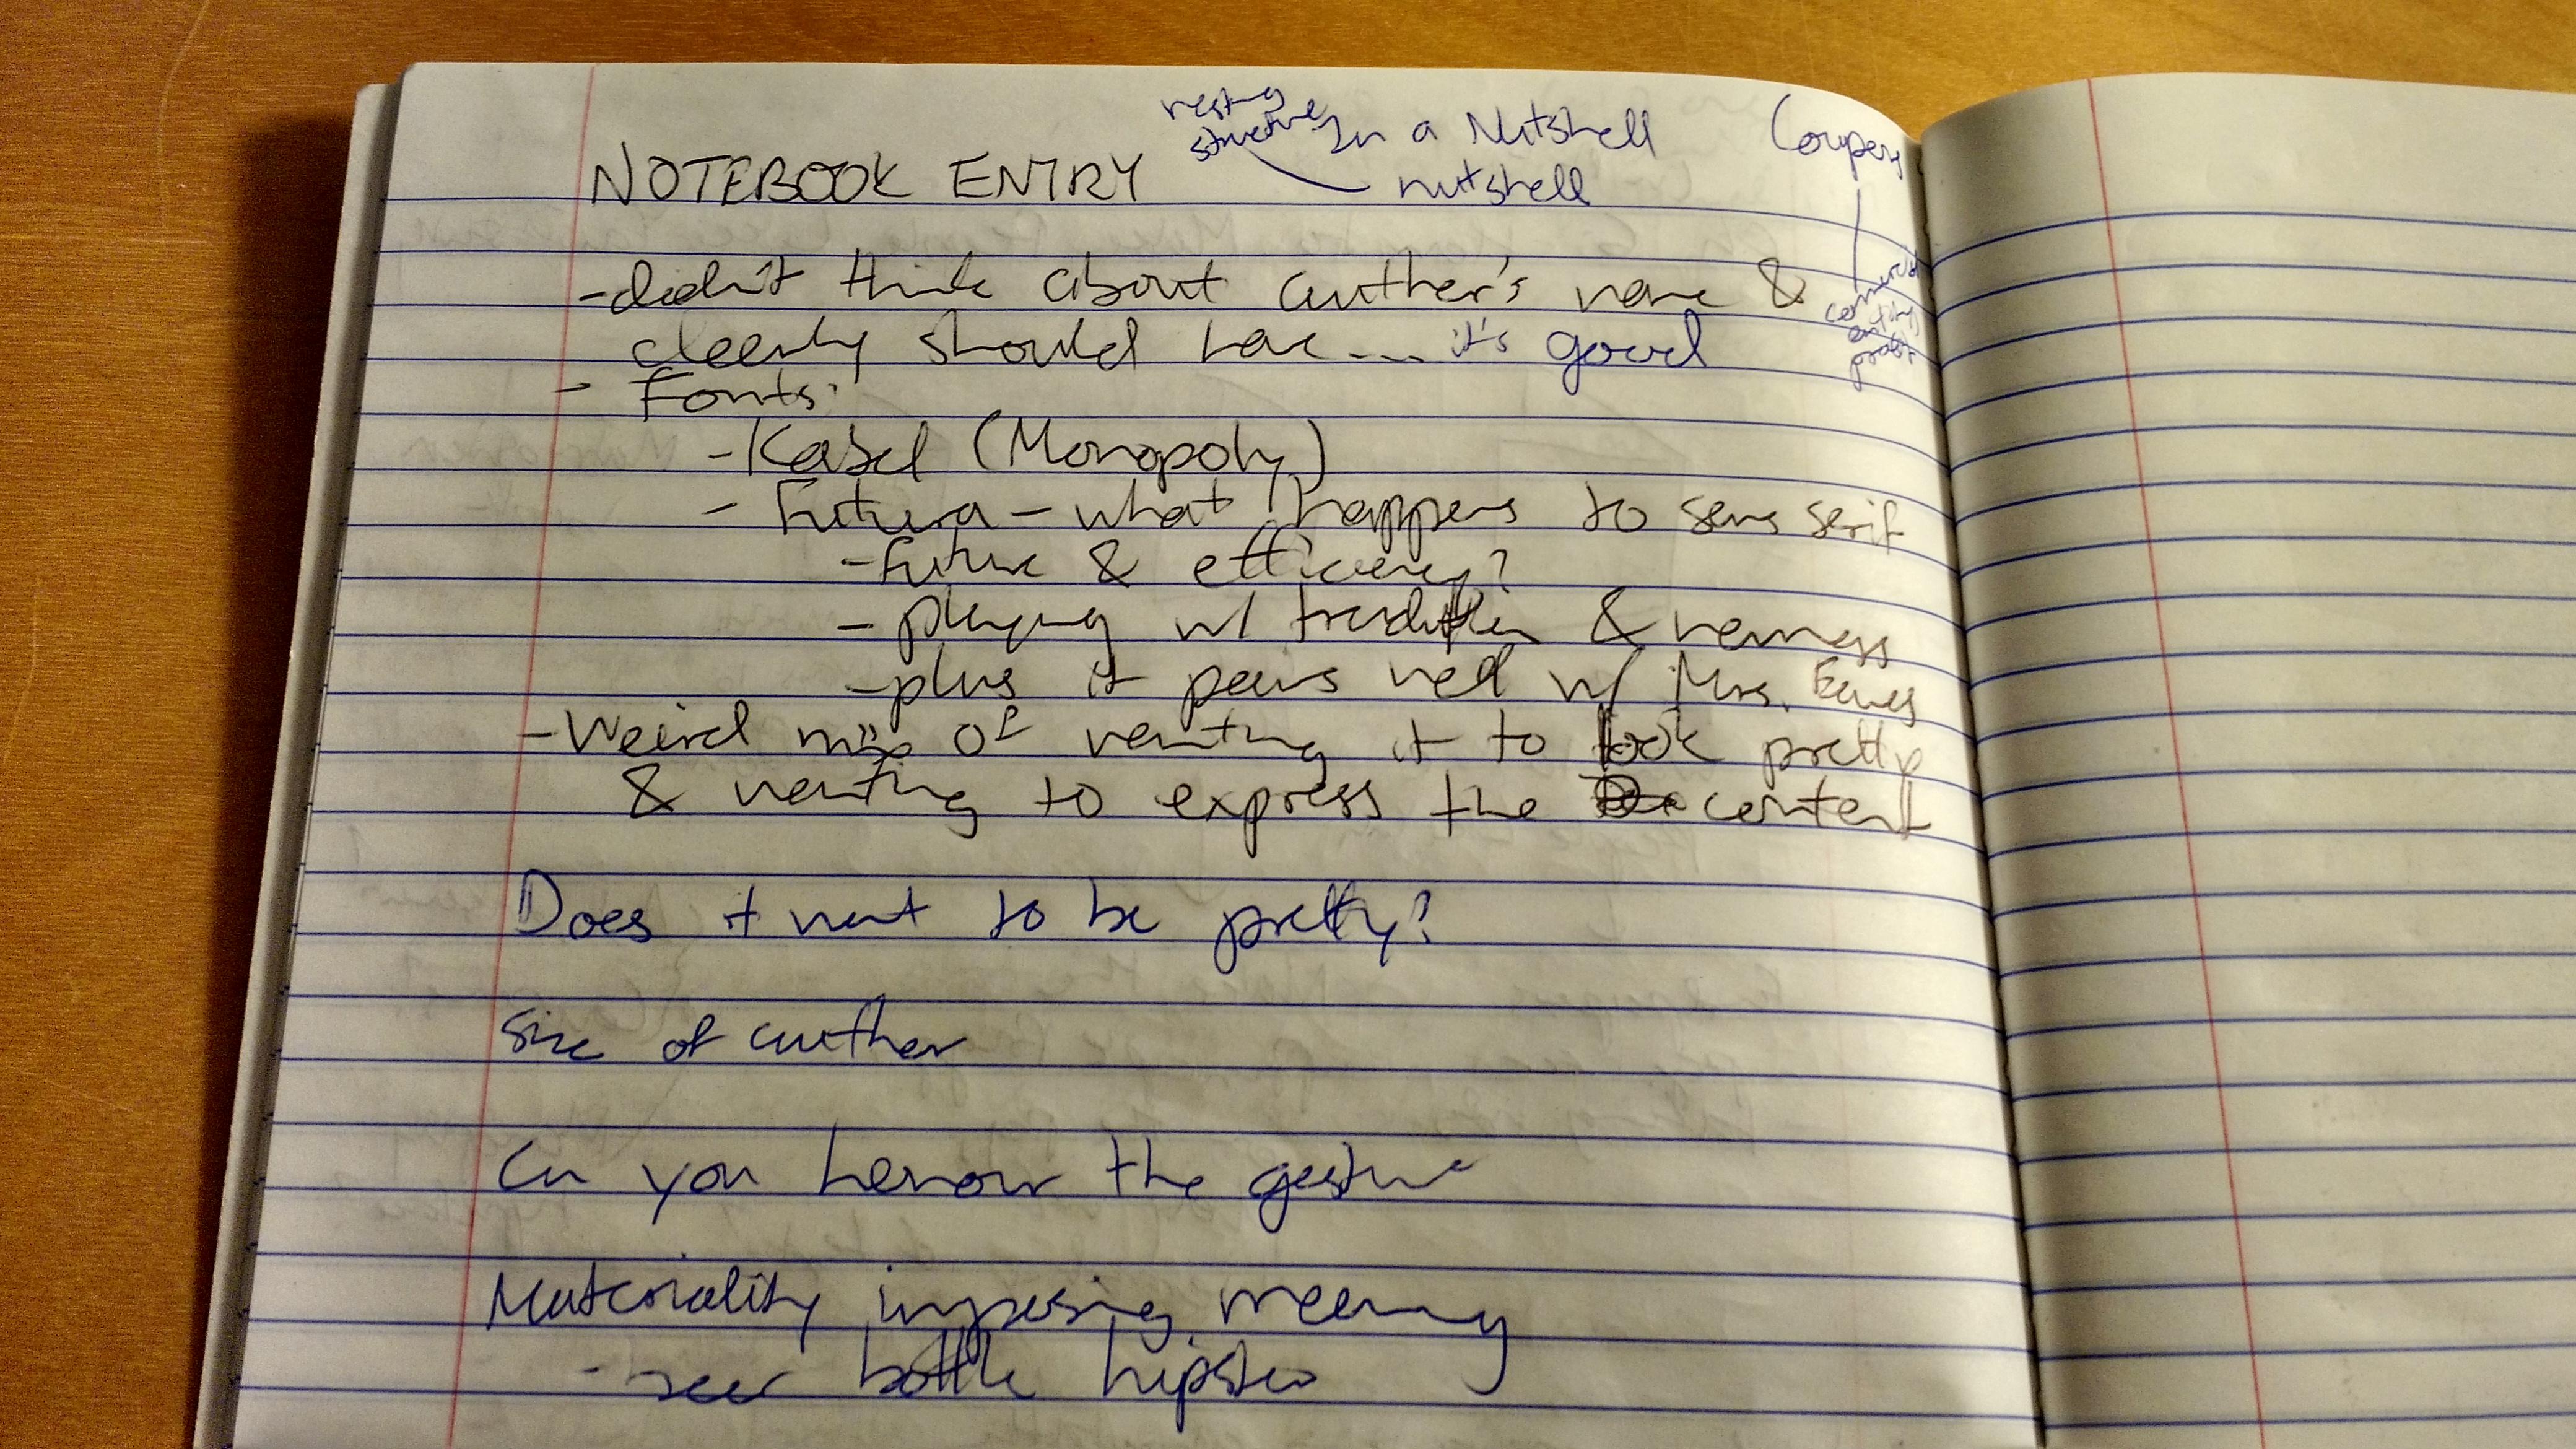 nesting
structure In a Nutshell
nutshell
Company
commercial
entity
profit
NOTEBOOK ENTRY
- didn't think about author's name &
clearly should have... it's good
- Fonts:
- Kabel (Monopoly)
- Futura - what happens to sans serif
- future & efficiency?
- playing w/ tradition & newness
- plus it pairs well w/ Mrs. Eaves
- Weird mix of wanting it to look pretty
& wanting to express the content
Does it want to be pretty?
Size of author
Can you honour the gesture
Materiality imposing meaning
- beer bottle hipster